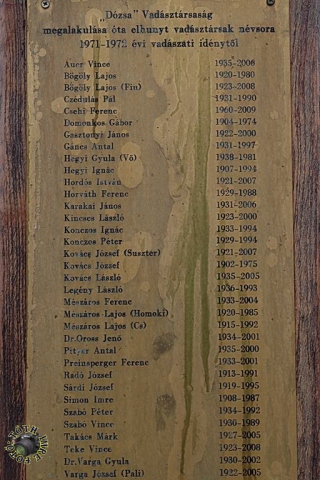 „Dózsa” Vadásztársaság
megalakulása óta elhunyt vadásztársak névsora
1971-1972 évi vadászati idénytől
Auer Vince 1935-2006
Bögöly Lajos 1920-1980
Bögöly Lajos (Fin) 1923-2008
Czédulás Pál 1931-1990
Csehi Ferenc 1960-2009
Domonkos Gábor 1904-1974
Gasztonyi János 1922-2000
Gánes Antal 1931-1997
Hegyi Gyula (Vő) 1938-1981
Hegyi Ignác 1907-1994
Hordós István 1921-2007
Horváth Ferenc 1929-1988
Karakai János 1931-2006
Kincses László 1923-2000
Konczos Ignác 1933-1994
Konczos Péter 1929-1994
Kovács József (Suszter) 1921-2007
Kovács József 1902-1975
Kovács László 1935-2005
Legény László 1936-1993
Mészáros Ferenc 1933-2004
Mészáros Lajos (Homoki) 1920-1985
Mészáros Lajos (Cs) 1915-1992
Dr.Oross Jenő 1934-2001
Pityer Antal 1935-2000
Preinsperger Ferenc 1933-2001
Radó József 1913-1991
Sárdi József 1919-1995
Simon Imre 1908-1987
Szabó Péter 1934-1992
Szabó Vince 1930-1989
Takács Márk 1927-2005
Teke Vince 1923-2008
Dr.Varga Gyula 1930-2002
Varga József (Pali) 1922-2005